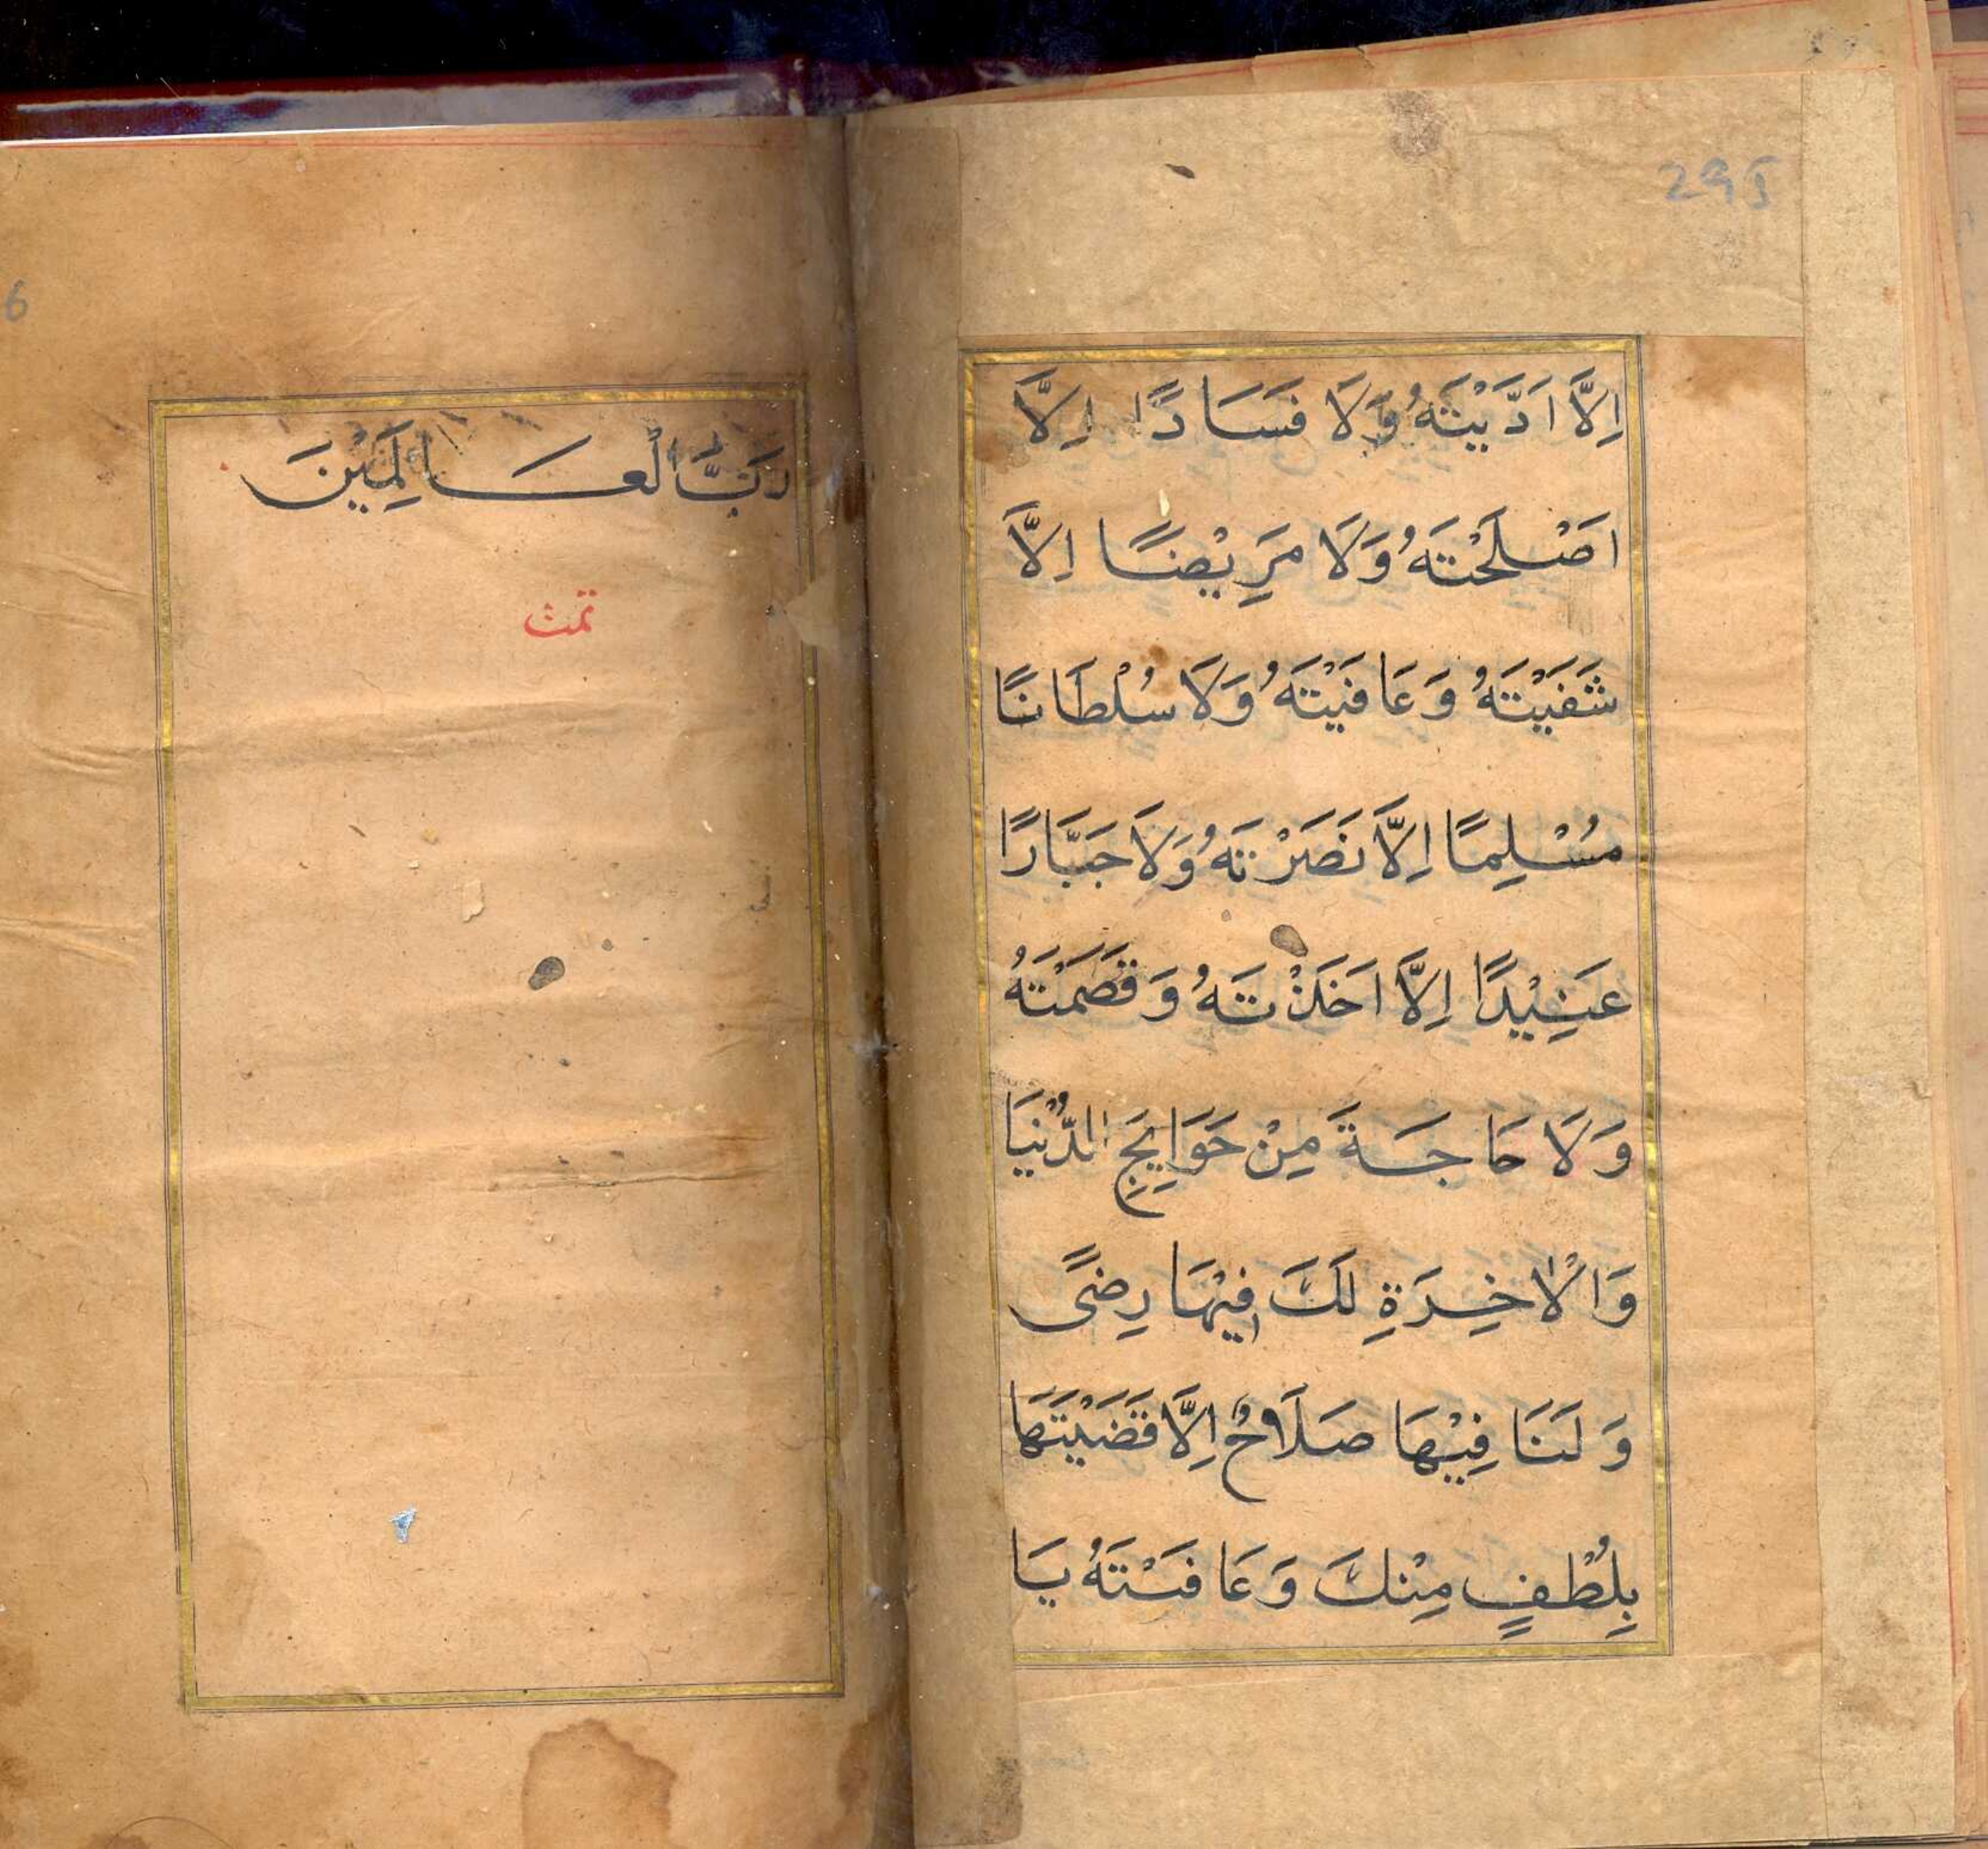 295
اِلَّا اَدَّيْتَهُ وَلَا فَسَادًا اِلَّا
اَصْلَحْتَهُ وَلَا مَرِيْضًا اِلَّا
شَفَيْتَهُ وَعَافَيْتَهُ وَلَا سُلْطَانًا
مُسْلِمًا اِلَّا نَصَرْتَهُ وَلَا جَبَّارًا
عَنِيْدًا اِلَّا اَخَذْتَهُ وَقَصَمْتَهُ
وَلَا حَاجَةً مِنْ حَوَايِجِ الدُّنْيَا
وَالْاٰخِرَةِ لَكَ فِيْهَا رِضًى
وَلَنَا فِيْهَا صَلَاحٌ اِلَّا قَضَيْتَهَا
بِلُطْفٍ مِنْكَ وَعَافَيْتَهُ يَا
6
رَبَّ الْعَالَمِيْنَ
تمت